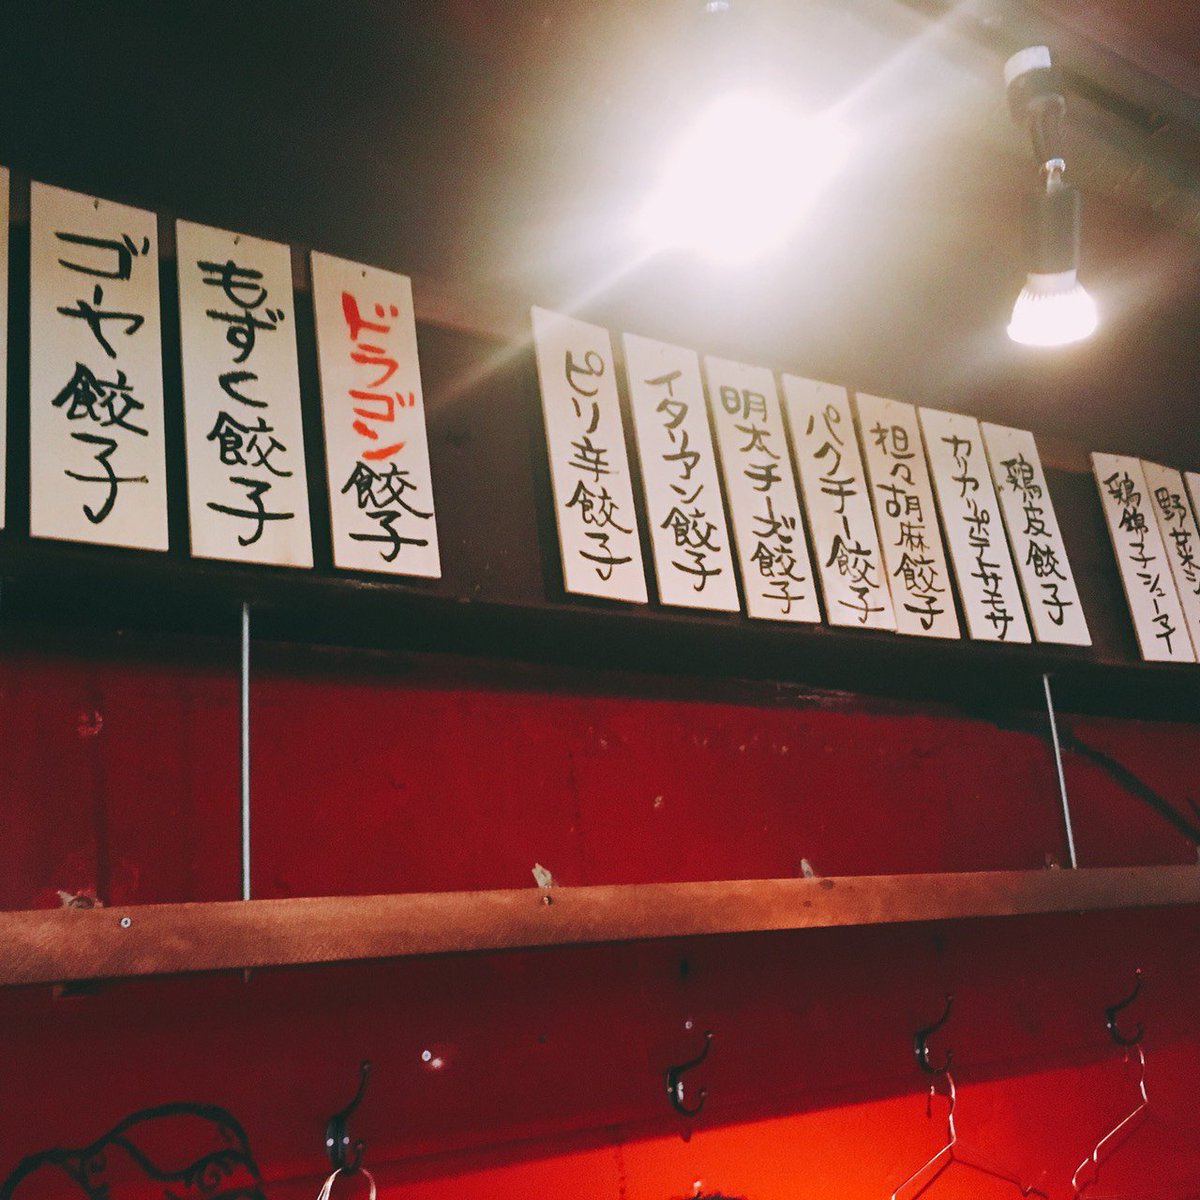 ゴーヤ餃子
もずく餃子
ドラゴン餃子
ピリ辛餃子
イタリアン餃子
明太チーズ餃子
パクチー餃子
担々胡麻餃子
カリカリポテトサモサ
鶏皮餃子
野菜